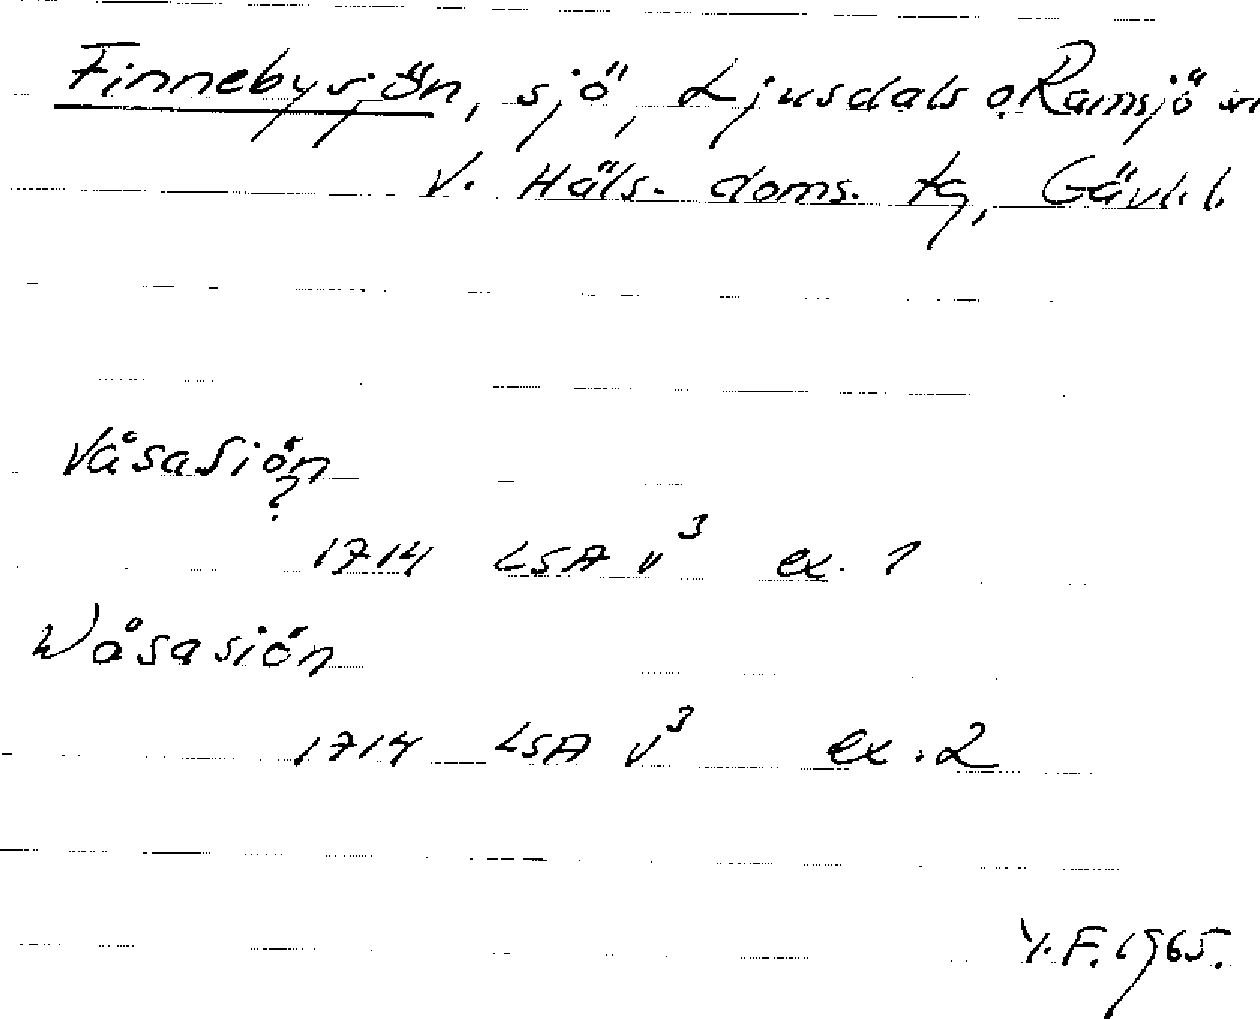 Finnebysjön, sjö, Ljusdals o. Ramsjö sn
V. Häls. doms. tg, Gävl. l.
VåsaSiön
?
1714 LSA V³ ex. 1
Wåsasiön
1714 LSA V³ ex. 2
Y. F. 1965.